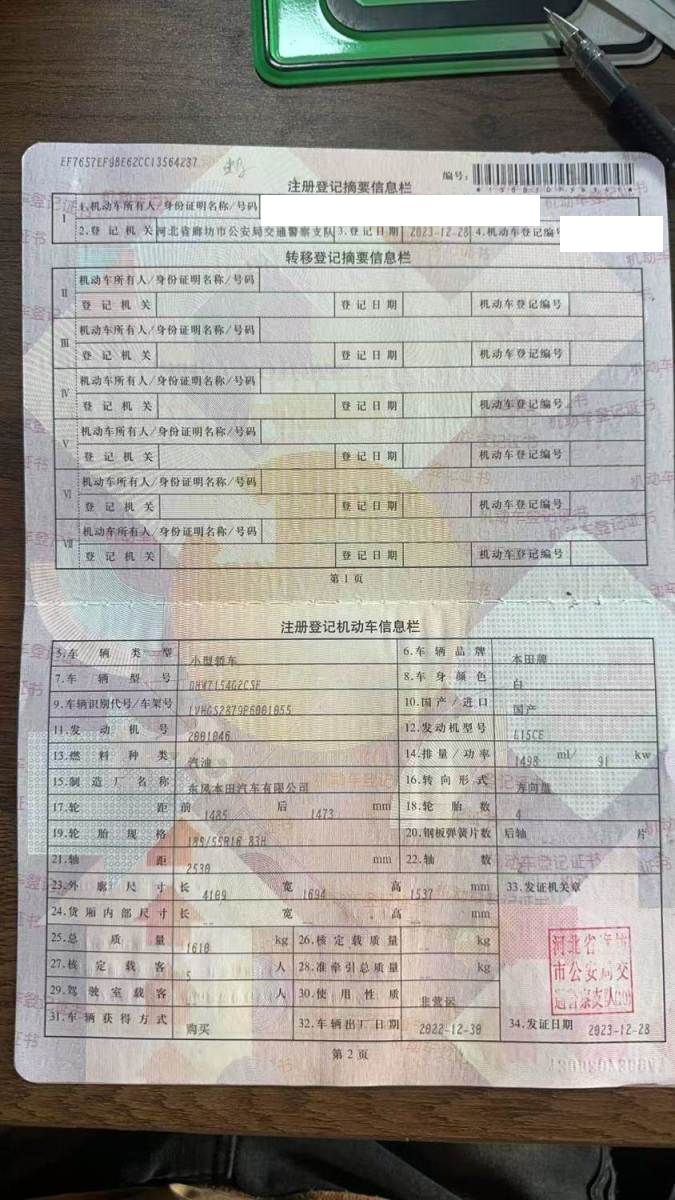 EF7657EF9BE62CC13564287
编号:
注册登记摘要信息栏
I 1.机动车所有人/身份证明名称/号码
2.登记机关 河北省廊坊市公安局交通警察支队 3.登记日期 2023-12-28 4.机动车登记编号
转移登记摘要信息栏
II 机动车所有人/身份证明名称/号码
登记机关 登记日期 机动车登记编号
III 机动车所有人/身份证明名称/号码
登记机关 登记日期 机动车登记编号
IV 机动车所有人/身份证明名称/号码
登记机关 登记日期 机动车登记编号
V 机动车所有人/身份证明名称/号码
登记机关 登记日期 机动车登记编号
VI 机动车所有人/身份证明名称/号码
登记机关 登记日期 机动车登记编号
VII 机动车所有人/身份证明名称/号码
登记机关 登记日期 机动车登记编号
第1页
注册登记机动车信息栏
5.车辆类型 小型轿车 6.车辆品牌 本田牌
7.车辆型号 DHW7154G2CSF 8.车身颜色 白
9.车辆识别代号/车架号 LVHGS2879P6001055 10.国产/进口 国产
11.发动机号 2001046 12.发动机型号 L15CE
13.燃料种类 汽油 14.排量/功率 1498 ml/ 91 kw
15.制造厂名称 东风本田汽车有限公司 16.转向形式 方向盘
17.轮距 前 1485 后 1473 mm 18.轮胎数 4
19.轮胎规格 185/55R16 83H 20.钢板弹簧片数 后轴 片
21.轴距 2530 mm 22.轴数 2
23.外廓尺寸 长 4109 宽 1694 高 1537 mm 33.发证机关章
24.货厢内部尺寸 长 -- 宽 -- 高 -- mm
25.总质量 1610 kg 26.核定载质量 -- kg
27.核定载客 5 人 28.准牵引总质量 -- kg
29.驾驶室载客 -- 人 30.使用性质 非营运
31.车辆获得方式 购买 32.车辆出厂日期 2022-12-30 34.发证日期 2023-12-28
河北省廊坊
市公安局交
通警察支队
第2页